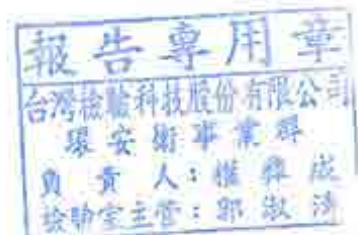 報告專用章
台灣檢驗科技股份有限公司
環安衛事業群
負責人：楊成
檢驗室主管：郭淑清